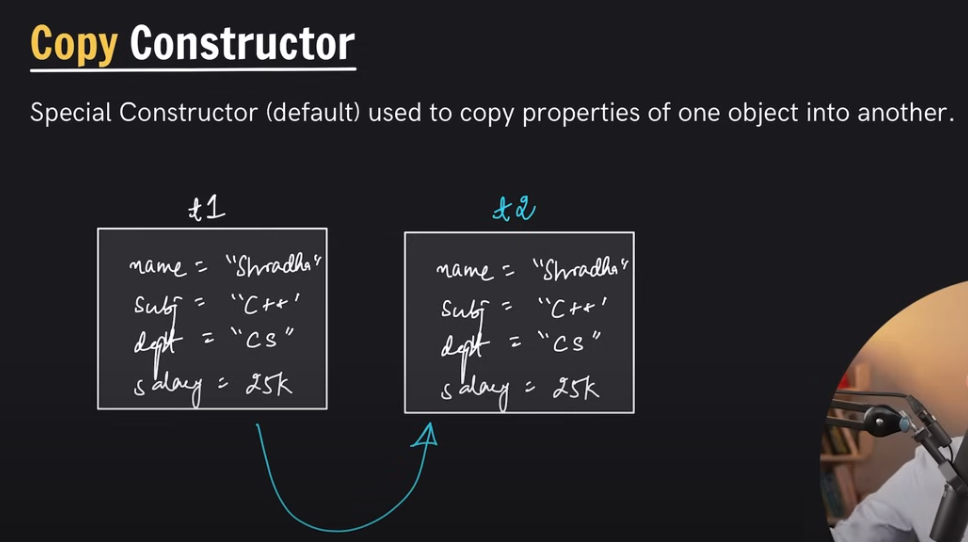 Copy Constructor
Special Constructor (default) used to copy properties of one object into another.
t1
name = "Shradha"
subj = "C++'
dept = "CS"
salary = 25k
t2
name = "Shradha"
subj = "C++'
dept = "CS"
salary = 25k